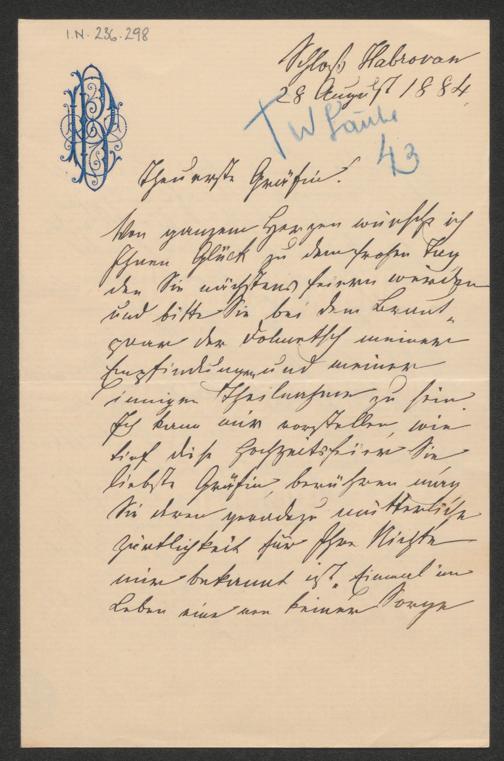 I.N. 236.298
Schloß Habrovan
28 August 1884
W Laube
43
Theuerste Gräfin!
Von ganzem Herzen wünsche ich
Ihnen Glück zu dem frohen Tag
den Sie nächstens feiern werden
und bitte Sie, bei dem Braut-
paar der Dolmetsch meiner
Empfindungen und meiner
innigen Theilnahme zu sein.
Ich kann mir vorstellen, wie
tief diese Hochzeitsfeier Sie
liebste Gräfin, berühren mag
Sie deren geradezu mütterliche
Zärtlichkeit für Ihre Nichte
mir bekannt ist. Einmal im
Leben eine von keiner Sorge